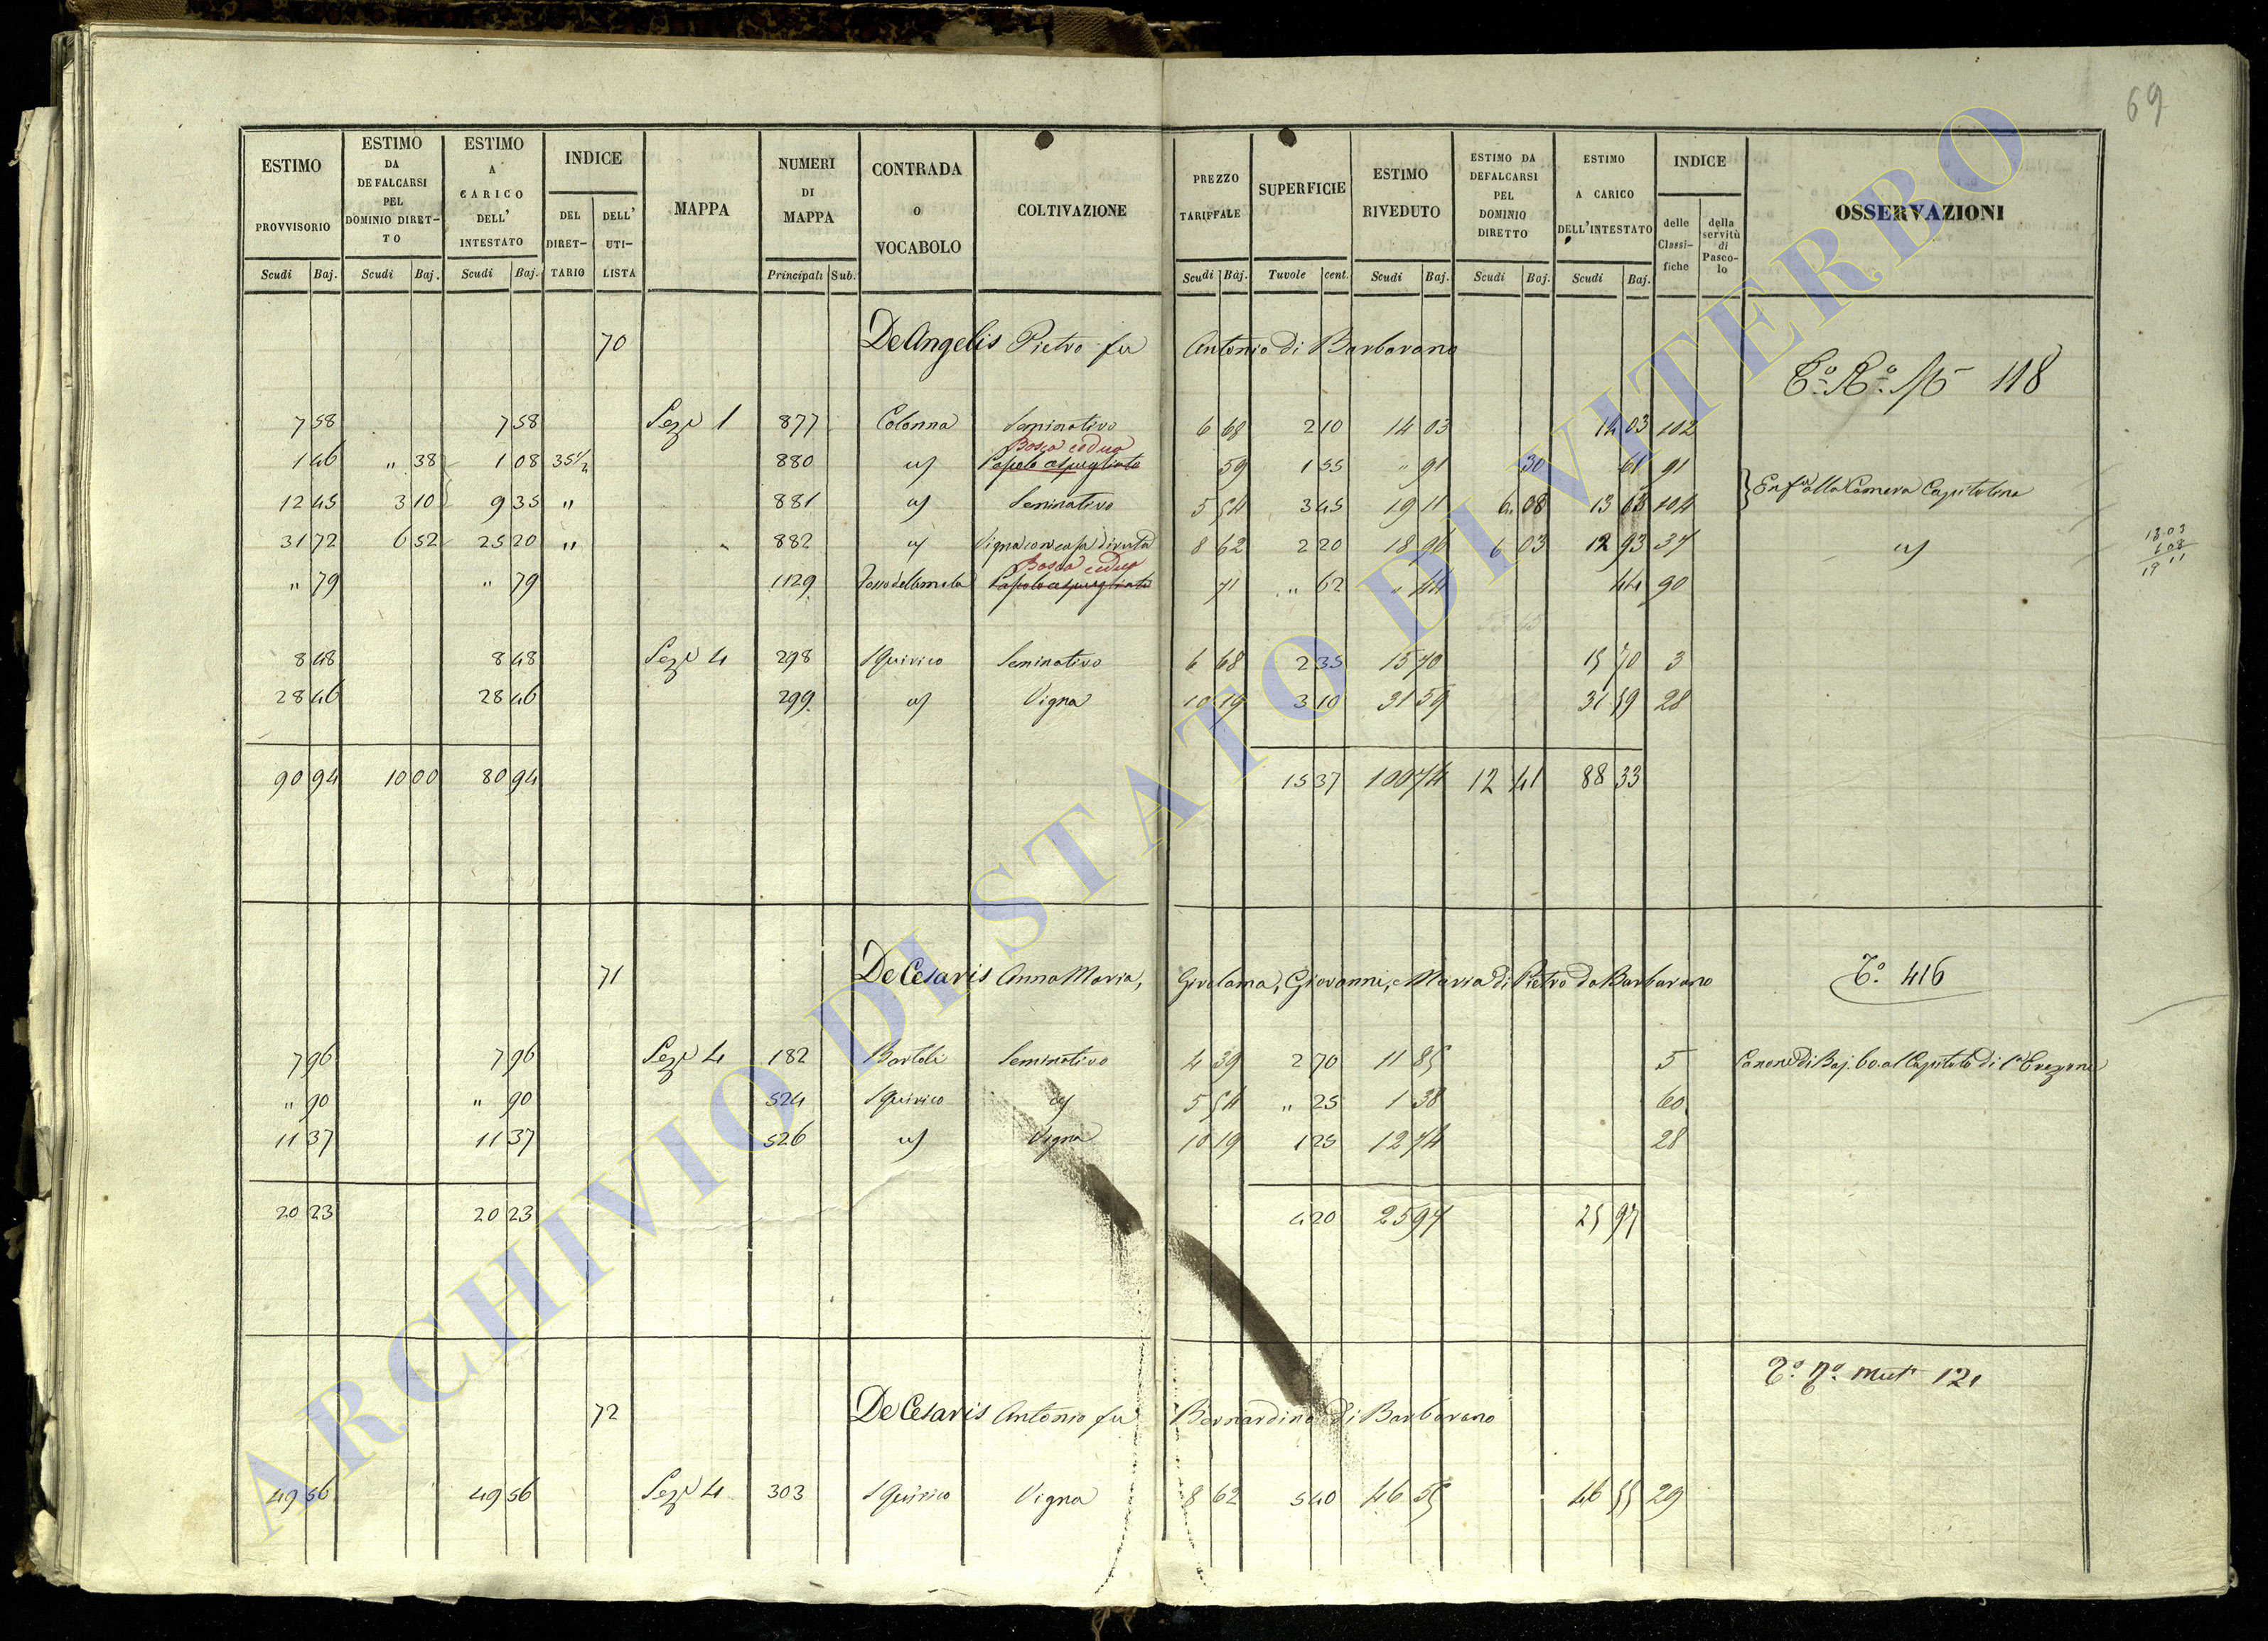 69
ESTIMO PROVVISORIO | ESTIMO DA DEFALCARSI PEL DOMINIO DIRET-TO | ESTIMO A CARICO DELL' INTESTATO | INDICE DEL DIRET-TARIO | DELL' UTI-LISTA | MAPPA | NUMERI DI MAPPA | CONTRADA O VOCABOLO | COLTIVAZIONE | PREZZO TARIFFALE | SUPERFICIE | ESTIMO RIVEDUTO | ESTIMO DA DEFALCARSI PEL DOMINIO DIRETTO | ESTIMO A CARICO DELL'INTESTATO | INDICE delle Classi-fiche | della servitù di Pasco-lo | OSSERVAZIONI
Scudi Baj. | Scudi Baj. | Scudi Baj. | Principali Sub. | Scudi Baj. | Tavole cent. | Scudi Baj. | Scudi Baj. | Scudi Baj.
70 De Angelis Pietro fu Antonio di Barbarano
118
7 58 | 7 58 | Sez.e 1 | 877 | Colonna | Seminativo | 6 68 | 2 10 | 14 03 | 14 03 | 102
Bosco ceduo
1 46 | " 38 | 1 08 | 35 1/2 | 880 | id | Pascolo cespugliato | 59 | 1 55 | " 91 | 30 | 61 | 91
12 45 | 3 10 | 9 35 | " | 881 | id | Seminativo | 5 54 | 3 45 | 19 11 | 6 08 | 13 03 | 104 | Enf.a alla Camera Capitolina
31 72 | 6 52 | 25 20 | " | 882 | id | Vigna con casa diruta | 8 62 | 2 20 | 18 96 | 6 03 | 12 93 | 37 | id
13.03
6 08
19 11
Bosco ceduo
" 79 | " 79 | 1129 | Pascolo cespugliato | 71 | " 62 | " 44 | 44 | 90
8 48 | 8 48 | Sez.e 4 | 298 | S Quirico | Seminativo | 6 68 | 2 35 | 15 70 | 15 70 | 3
28 46 | 28 46 | 299 | id | Vigna | 10 19 | 3 10 | 31 59 | 31 59 | 28
90 94 | 10 00 | 80 94 | 15 37 | 100 74 | 12 41 | 88 33
71 De Cesaris Anna Maria, Girolama, Giovanni, e Maria di Pietro da Barbarano | T.o 416
7 96 | 7 96 | Sez.e 4 | 182 | Bartoli | Seminativo | 4 39 | 2 70 | 11 85 | 5 | Canone di Baj. 60. al Capitolo di
" 90 | " 90 | 524 | S Quirico | id | 5 54 | " 25 | 1 38 | 60
11 37 | 11 37 | 526 | id | Vigna | 10 19 | 1 25 | 12 74 | 28
20 23 | 20 23 | 4 20 | 25 97 | 25 97
T.o N.o mut 121
72 De Cesaris Antonio fu Bernardino di Barbarano
49 56 | 49 56 | Sez.e 4 | 303 | S Quirico | Vigna | 8 62 | 5 40 | 46 55 | 46 55 | 29
ARCHIVIO DI STATO DI VITERBO